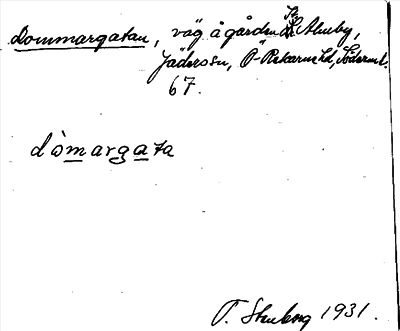 Dommargatan, väg å gården St. Almby,
Jäders sn, Ö-Rekarne hd, Söderml.
67.
dòmargata
T. Stenberg 1931.